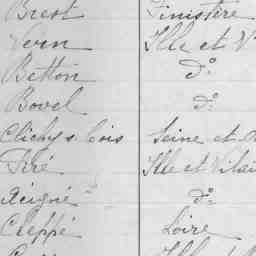 Brest Finistère
Vern Ille et V
Betton do
Bovel do
Clichy s. bois Seine et
Piré Ille et Vilai
Acigné do
Cleppé Loire